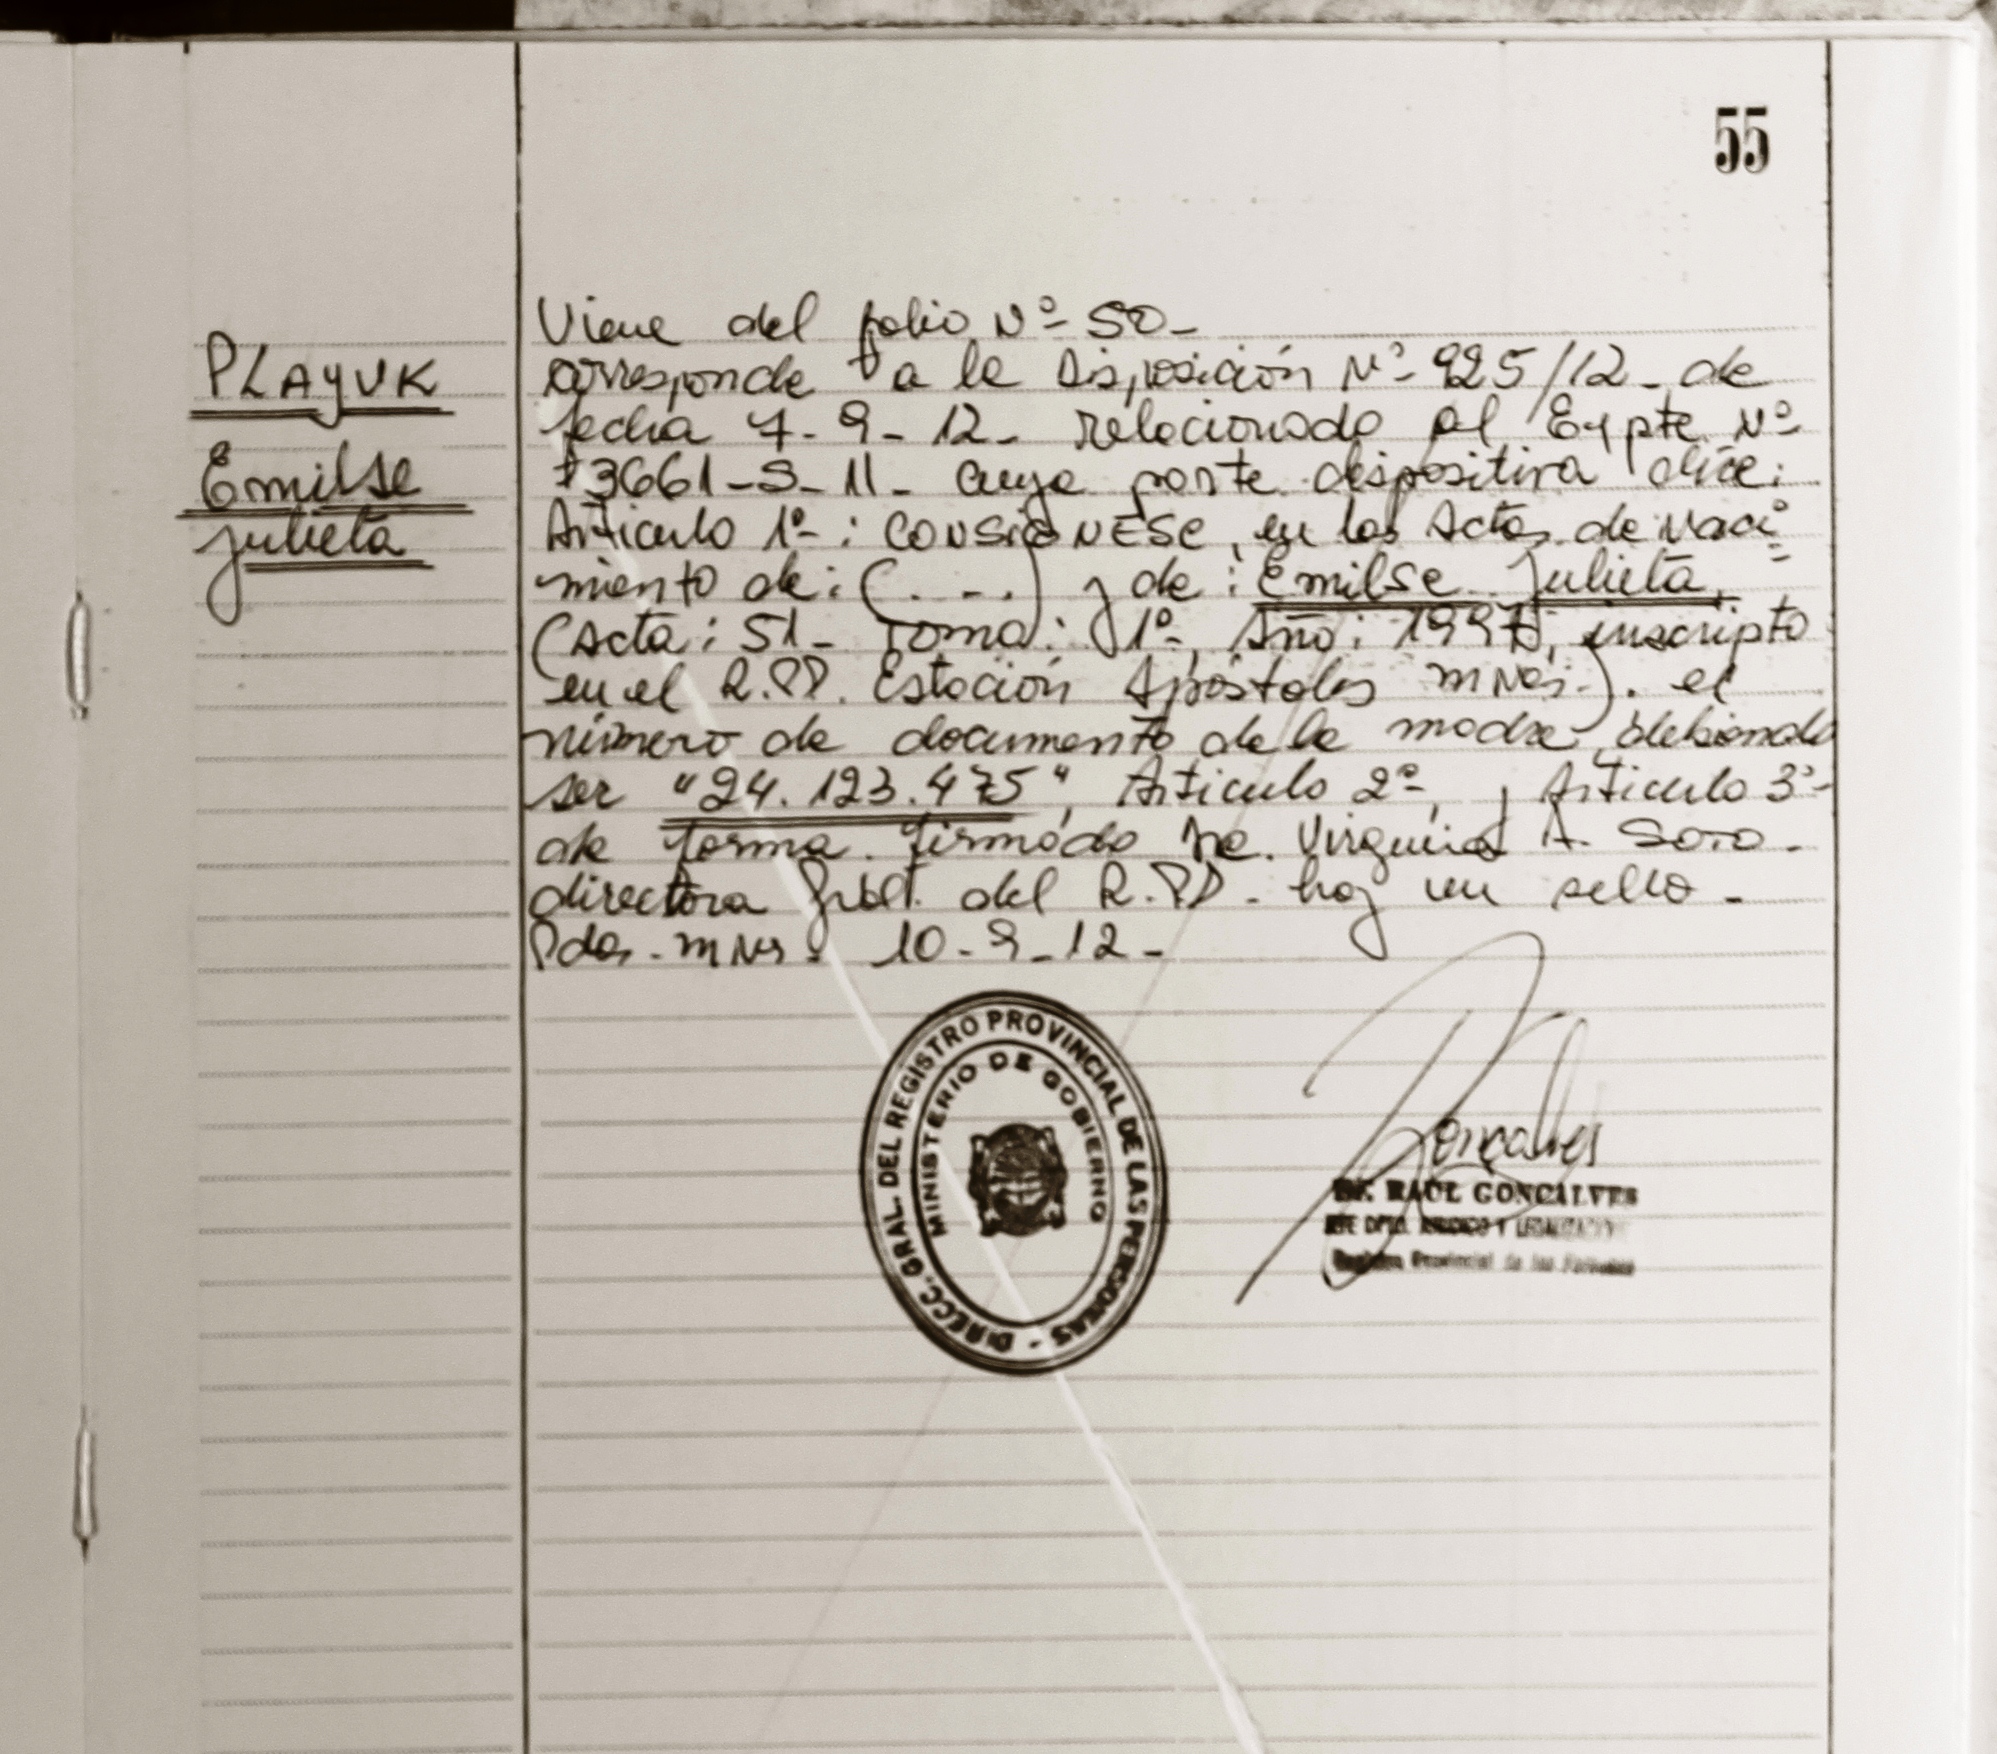 55
PLAYUK
Emilse
Julieta
Viene del folio Nº 50-
corresponde a la Disposición Nº 925/12- de
fecha 7-9-12- relacionado al Expte Nº
3661-S-11- cuya parte dispositiva dice:
Articulo 1º-: CONSIGNESE, en las Actas de Naci
miento de: (....) y de: Emilse Julieta,
(Acta: 51- Tomo: 1º, Año: 1997, inscripto
en el R.PP. Estación Apóstoles mNes.). el
número de documento de la madre, debiendo
ser "24.123.475", Articulo 2º-, y Articulo 3º-
de forma. firmado Virginia A. Soto-
directora Gral. del R.PP. hay un sello-
Pdas. mNes. 10-9-12-
DIRECC. GRAL. DEL REGISTRO PROVINCIAL DE LAS PERSONAS -
MINISTERIO DE GOBIERNO
Gonçalves
Dr. RAUL GONCALVES
JEFE DPTO. JURIDICO Y
Registro Provincial de las Personas